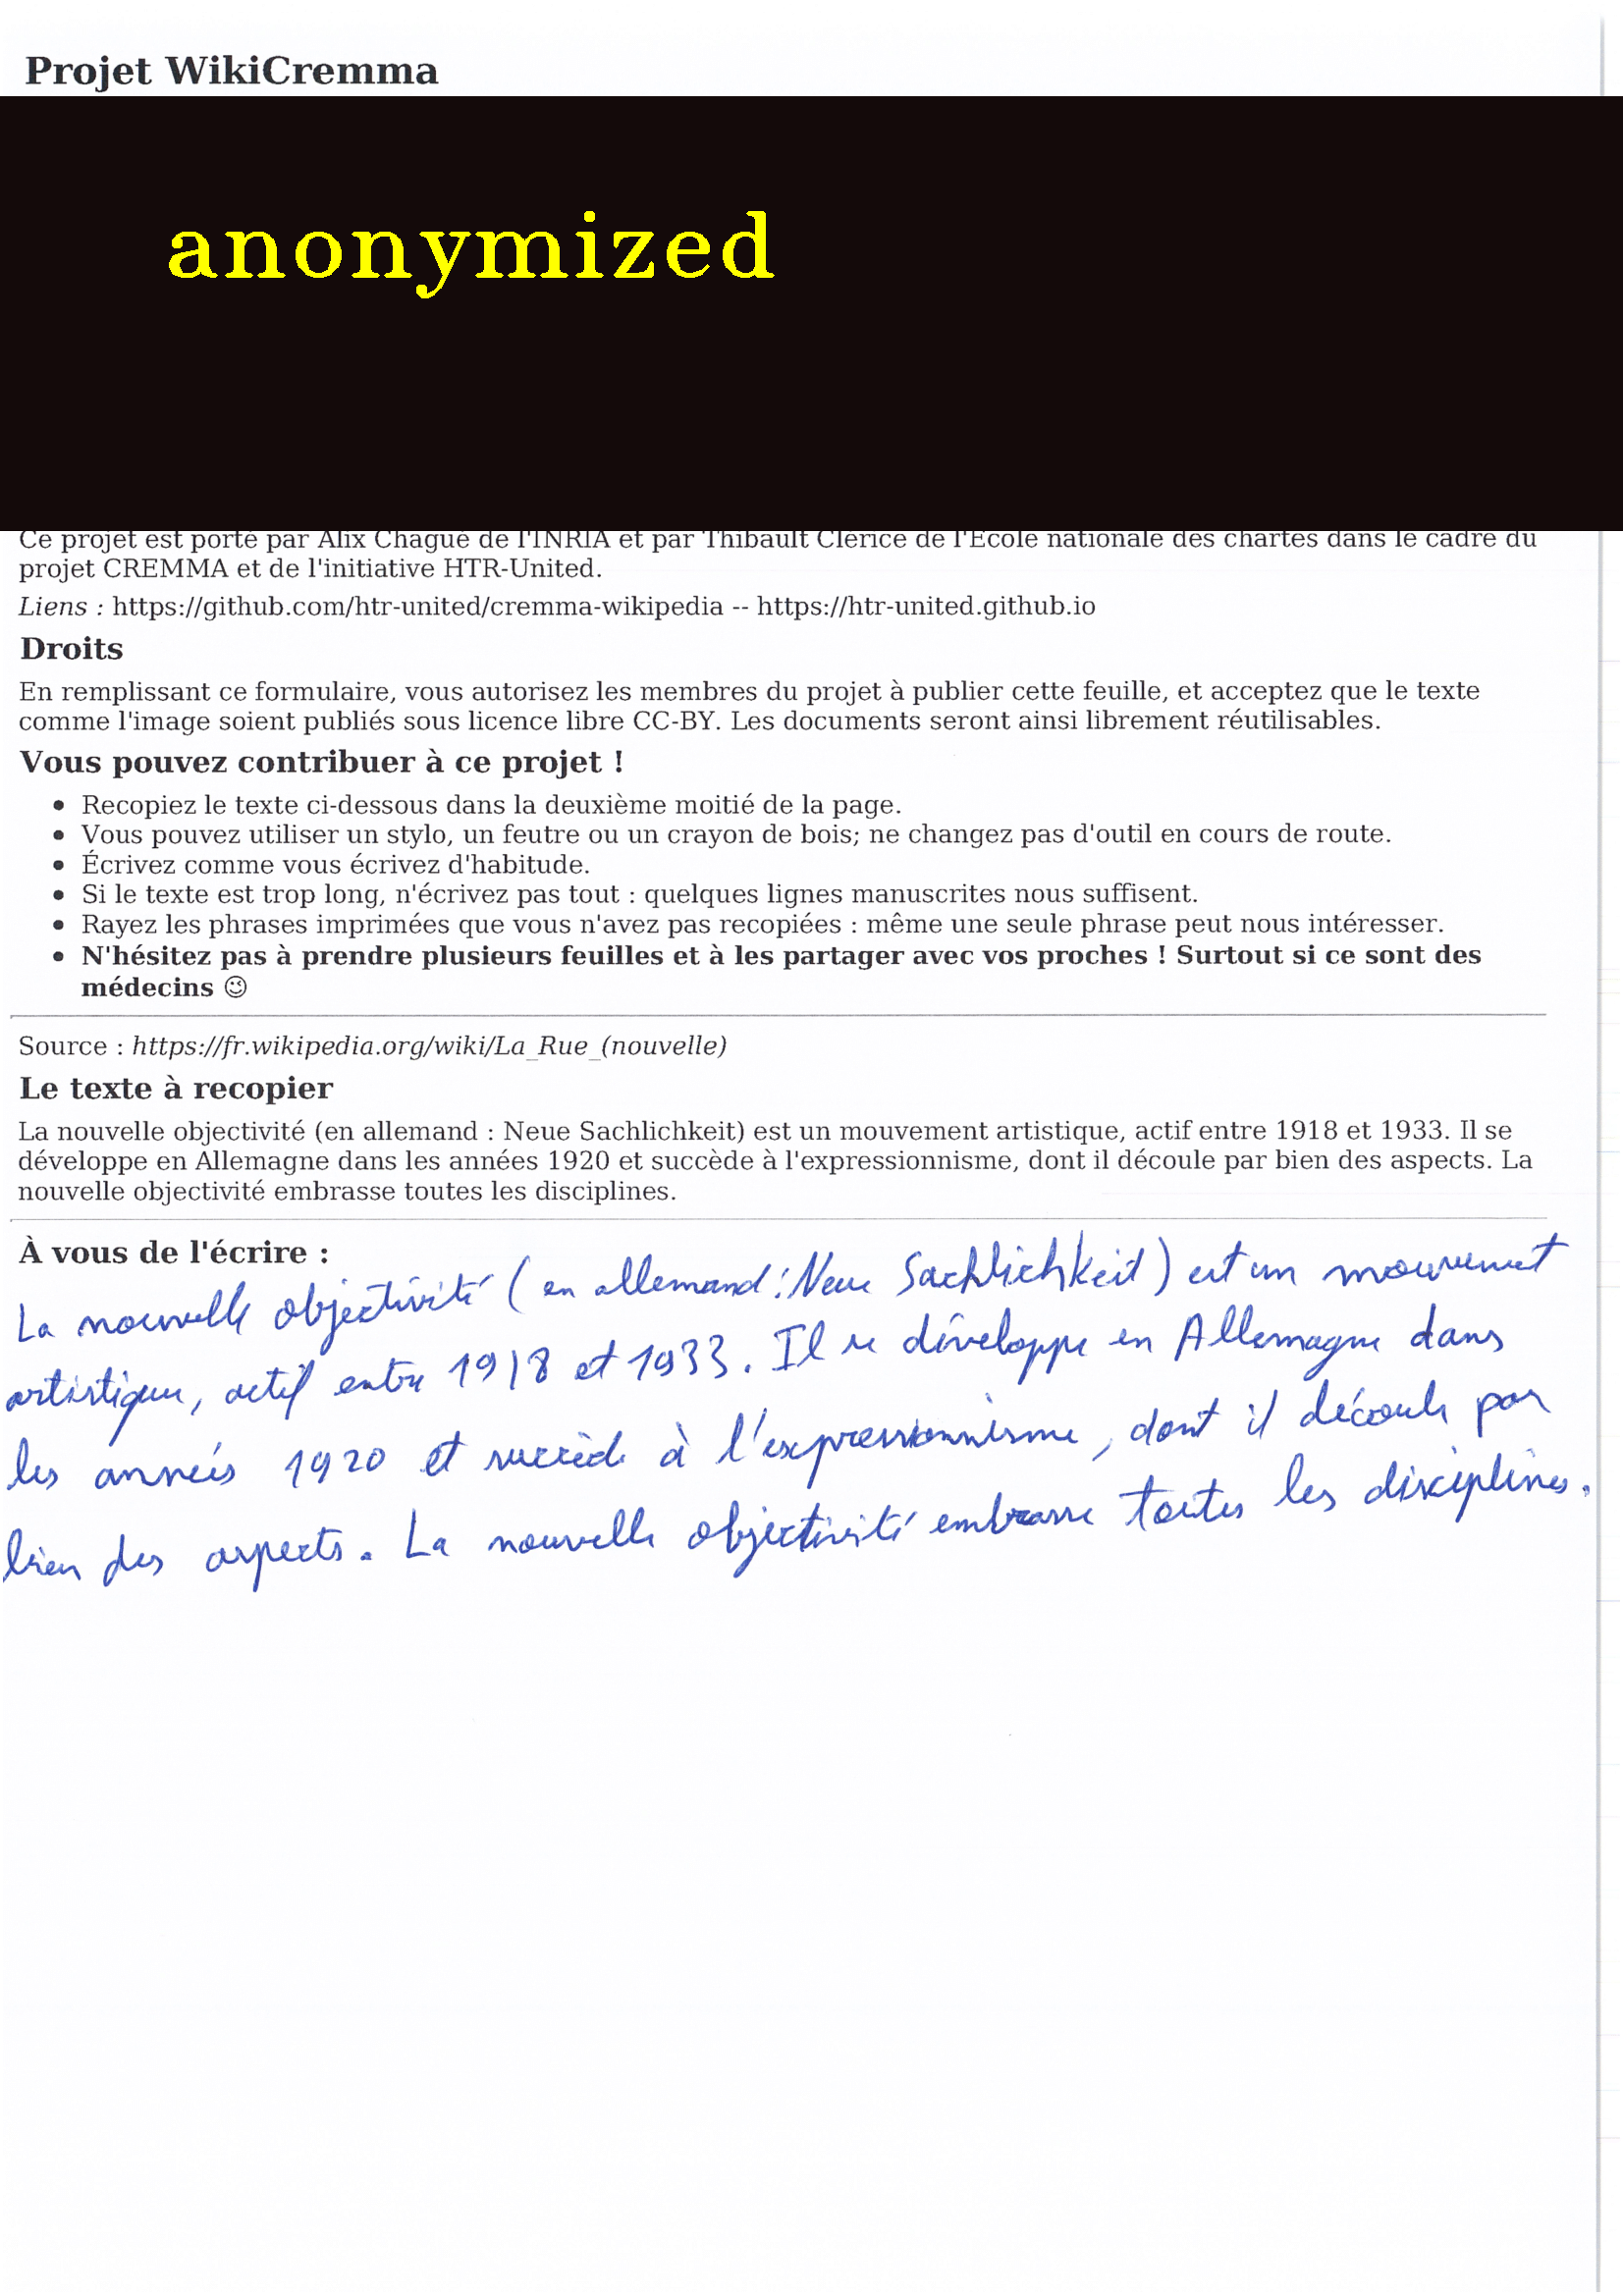 Projet WikiCremma
anonymized
Ce projet est porté par Alix Chagué de l'INRIA et par Thibault Clérice de l'École nationale des chartes dans le cadre du
projet CREMMA et de l'initiative HTR-United.
Liens : https://github.com/htr-united/cremma-wikipedia -- https://htr-united.github.io
Droits
En remplissant ce formulaire, vous autorisez les membres du projet à publier cette feuille, et acceptez que le texte
comme l'image soient publiés sous licence libre CC-BY. Les documents seront ainsi librement réutilisables.
Vous pouvez contribuer à ce projet !
• Recopiez le texte ci-dessous dans la deuxième moitié de la page.
• Vous pouvez utiliser un stylo, un feutre ou un crayon de bois; ne changez pas d'outil en cours de route.
• Écrivez comme vous écrivez d'habitude.
• Si le texte est trop long, n'écrivez pas tout : quelques lignes manuscrites nous suffisent.
• Rayez les phrases imprimées que vous n'avez pas recopiées : même une seule phrase peut nous intéresser.
• N'hésitez pas à prendre plusieurs feuilles et à les partager avec vos proches ! Surtout si ce sont des
médecins ☺
Source : https://fr.wikipedia.org/wiki/La_Rue_(nouvelle)
Le texte à recopier
La nouvelle objectivité (en allemand : Neue Sachlichkeit) est un mouvement artistique, actif entre 1918 et 1933. Il se
développe en Allemagne dans les années 1920 et succède à l'expressionnisme, dont il découle par bien des aspects. La
nouvelle objectivité embrasse toutes les disciplines.
À vous de l'écrire :
La nouvelle objectivité (en allemand : Neue Sachlichkeit) est un mouvement
artistique, actif entre 1918 et 1933. Il se développe en Allemagne dans
les années 1920 et succède à l'expressionnisme, dont il découle par
bien des aspects. La nouvelle objectivité embrasse toutes les disciplines.